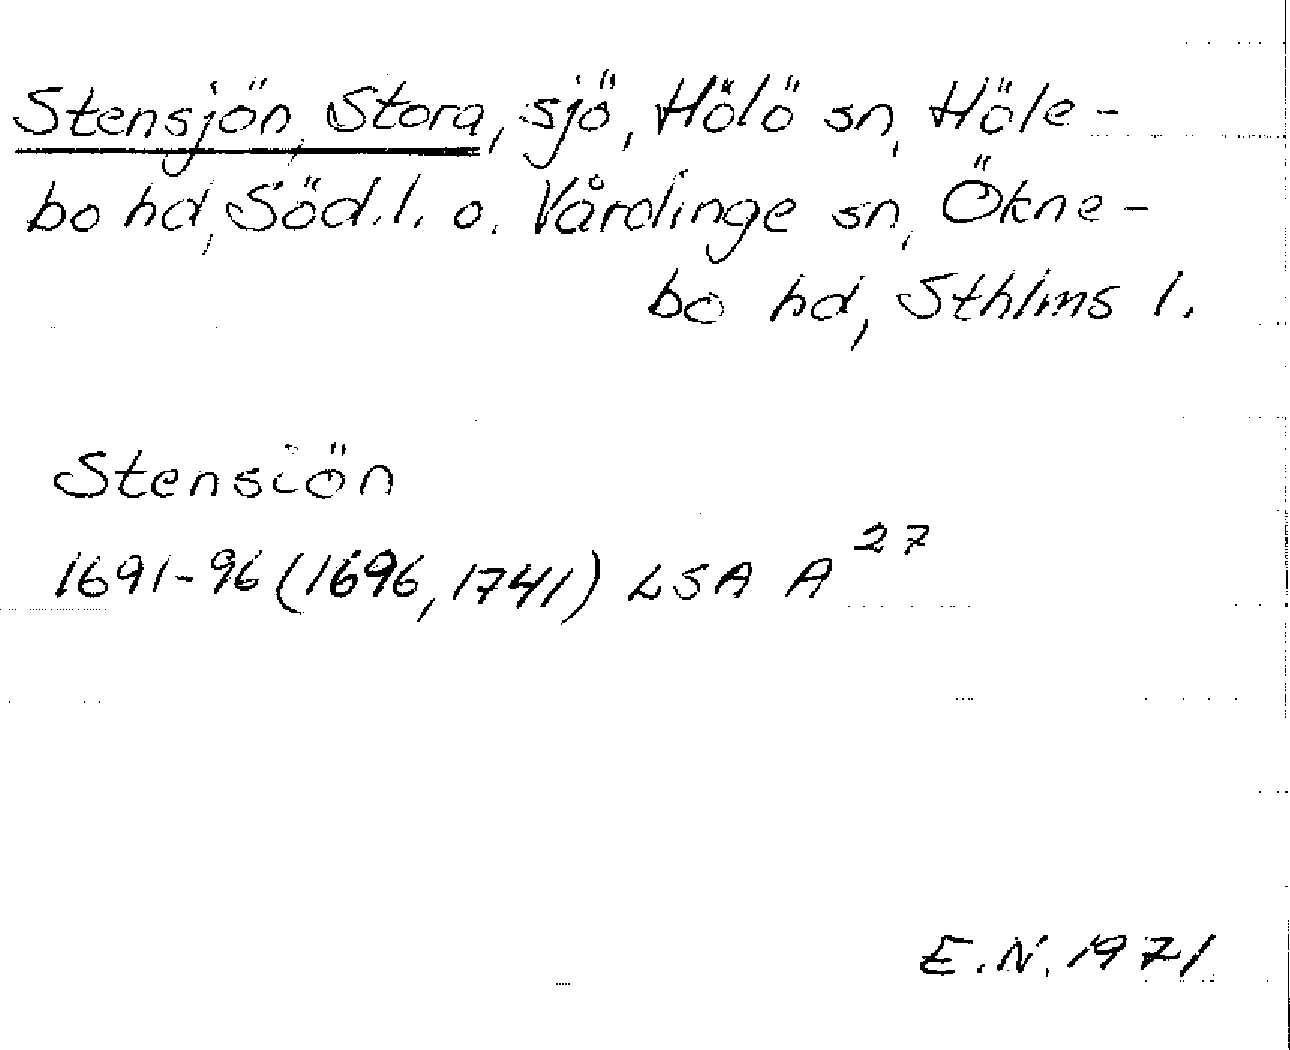 Stensjön, Stora, sjö, Hölö sn, Höle-
bo hd, Söd. l. o. Vårdinge sn, Ökne-
bo hd, Sthlms l.
Stensiön
1691-96 (1696, 1741) LSA A 27
E.N. 1971